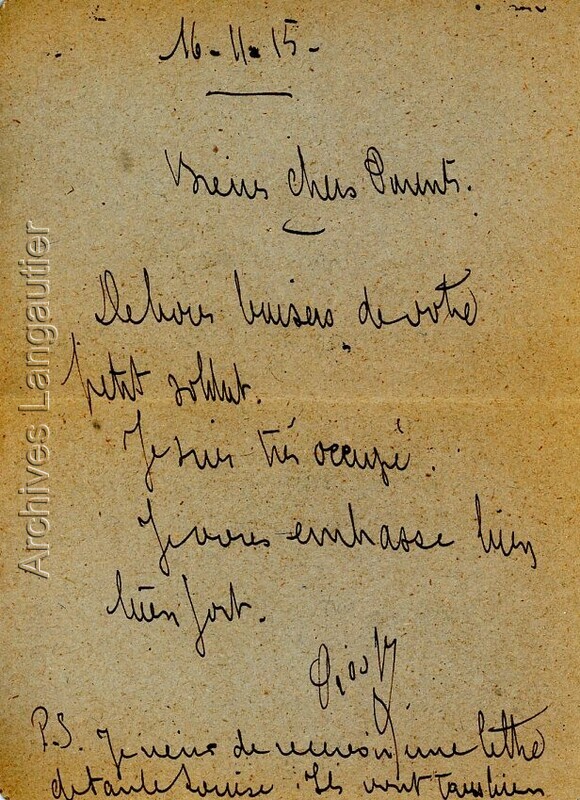 16-11-15-
Biens chers Parents.
De bons baisers de votre
petit soldat.
Je suis très occupé.
Je vous embrasse bien
bien fort.
P.S. Je viens de recevoir une lettre
de tante Louise. Ils vont tous bien
Archives Langautier